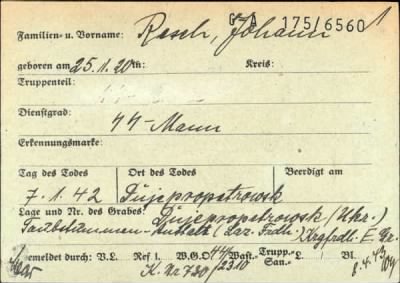 G-A 175/6560 1
Familien- u. Vorname: Resch, Johann
geboren am 25.1.20 in: Kreis:
Truppenteil:
Dienstgrad: SS-Mann
Erkennungsmarke:
Tag des Todes Ort des Todes Beerdigt am
7.1.42 Dnjepropetrowsk
Lage und Nr. des Grabes: Dnjepropetrowsk (Ukr.)
Taubstummen-Anstalt (Laz. Frdh.) Krgfrdh. E. Gr.
gemeldet durch: V.L. Ref 1. W.G.O. Wast.- Trupp.- San.- L. Bl.
K. Nr 720/2310 8.4.43